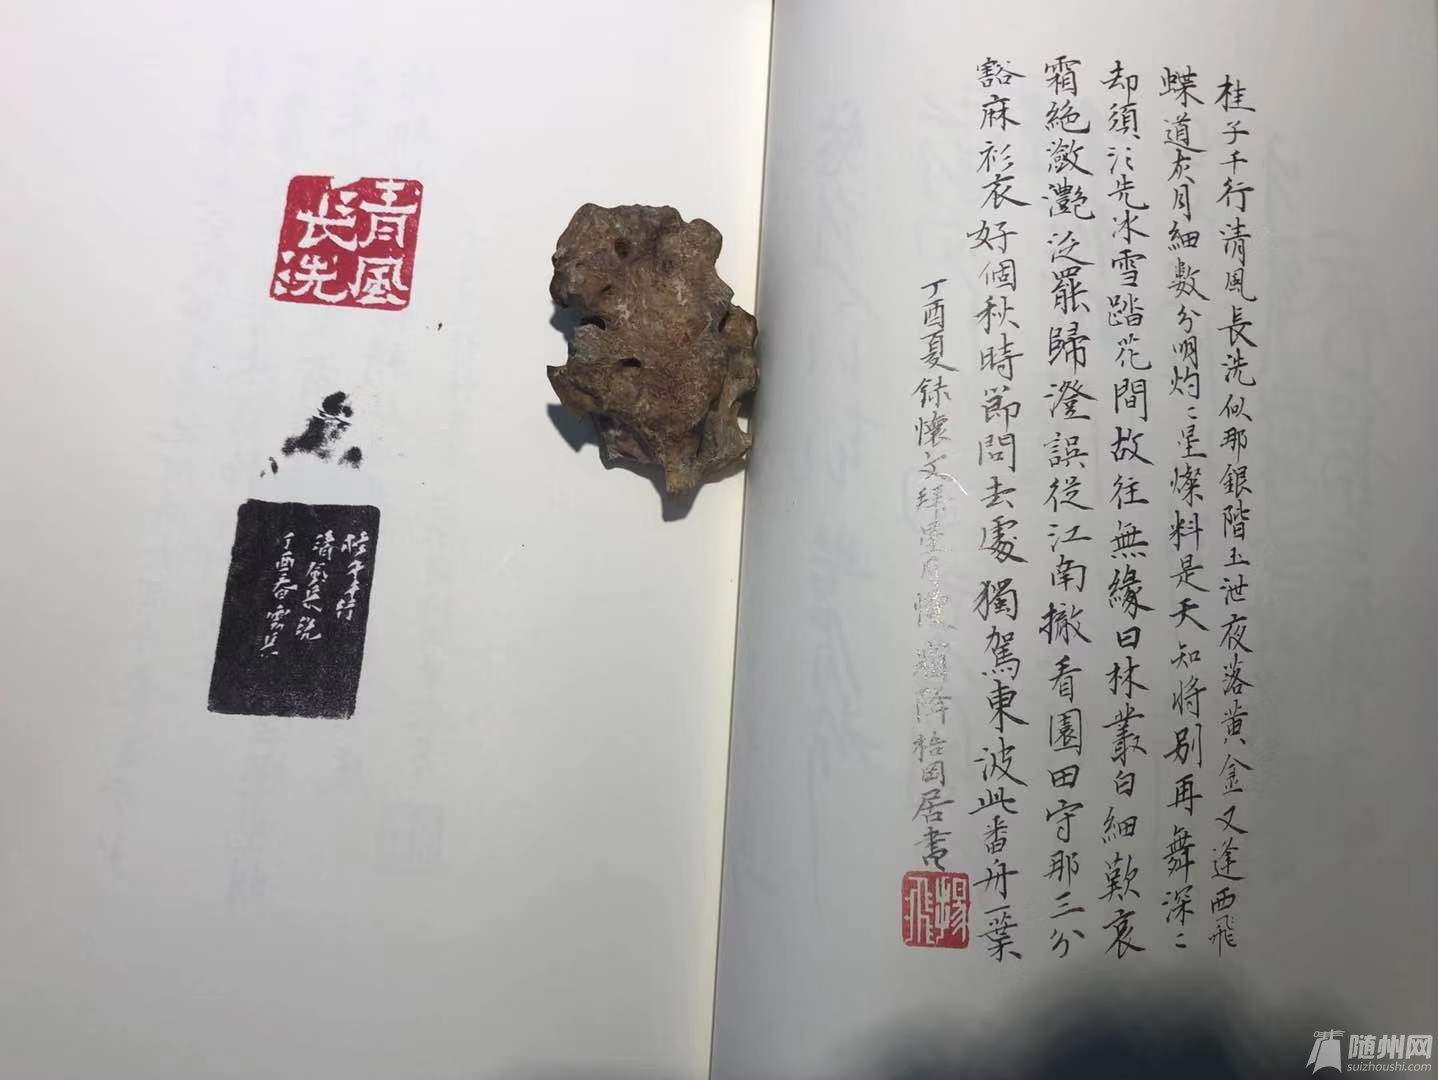 桂子千行清風長洗似那銀階玉泄夜落黄金又逢西飛
蝶道灰月細數分明灼〻星燦料是天知將别再舞深〻
却須泣先冰雪踏花間故往無緣日林叢白細歎哀
霜絶瀲灩泛罷歸澄誤從江南撤看園田守那三分
豁麻衫衣好個秋時節問去處獨駕東波此番舟一葉
丁酉夏録懷文拜壘月懷 居書
青風
長洗
桂子千行
清風長洗
丁酉春雲
随州网
suizhoushi.com